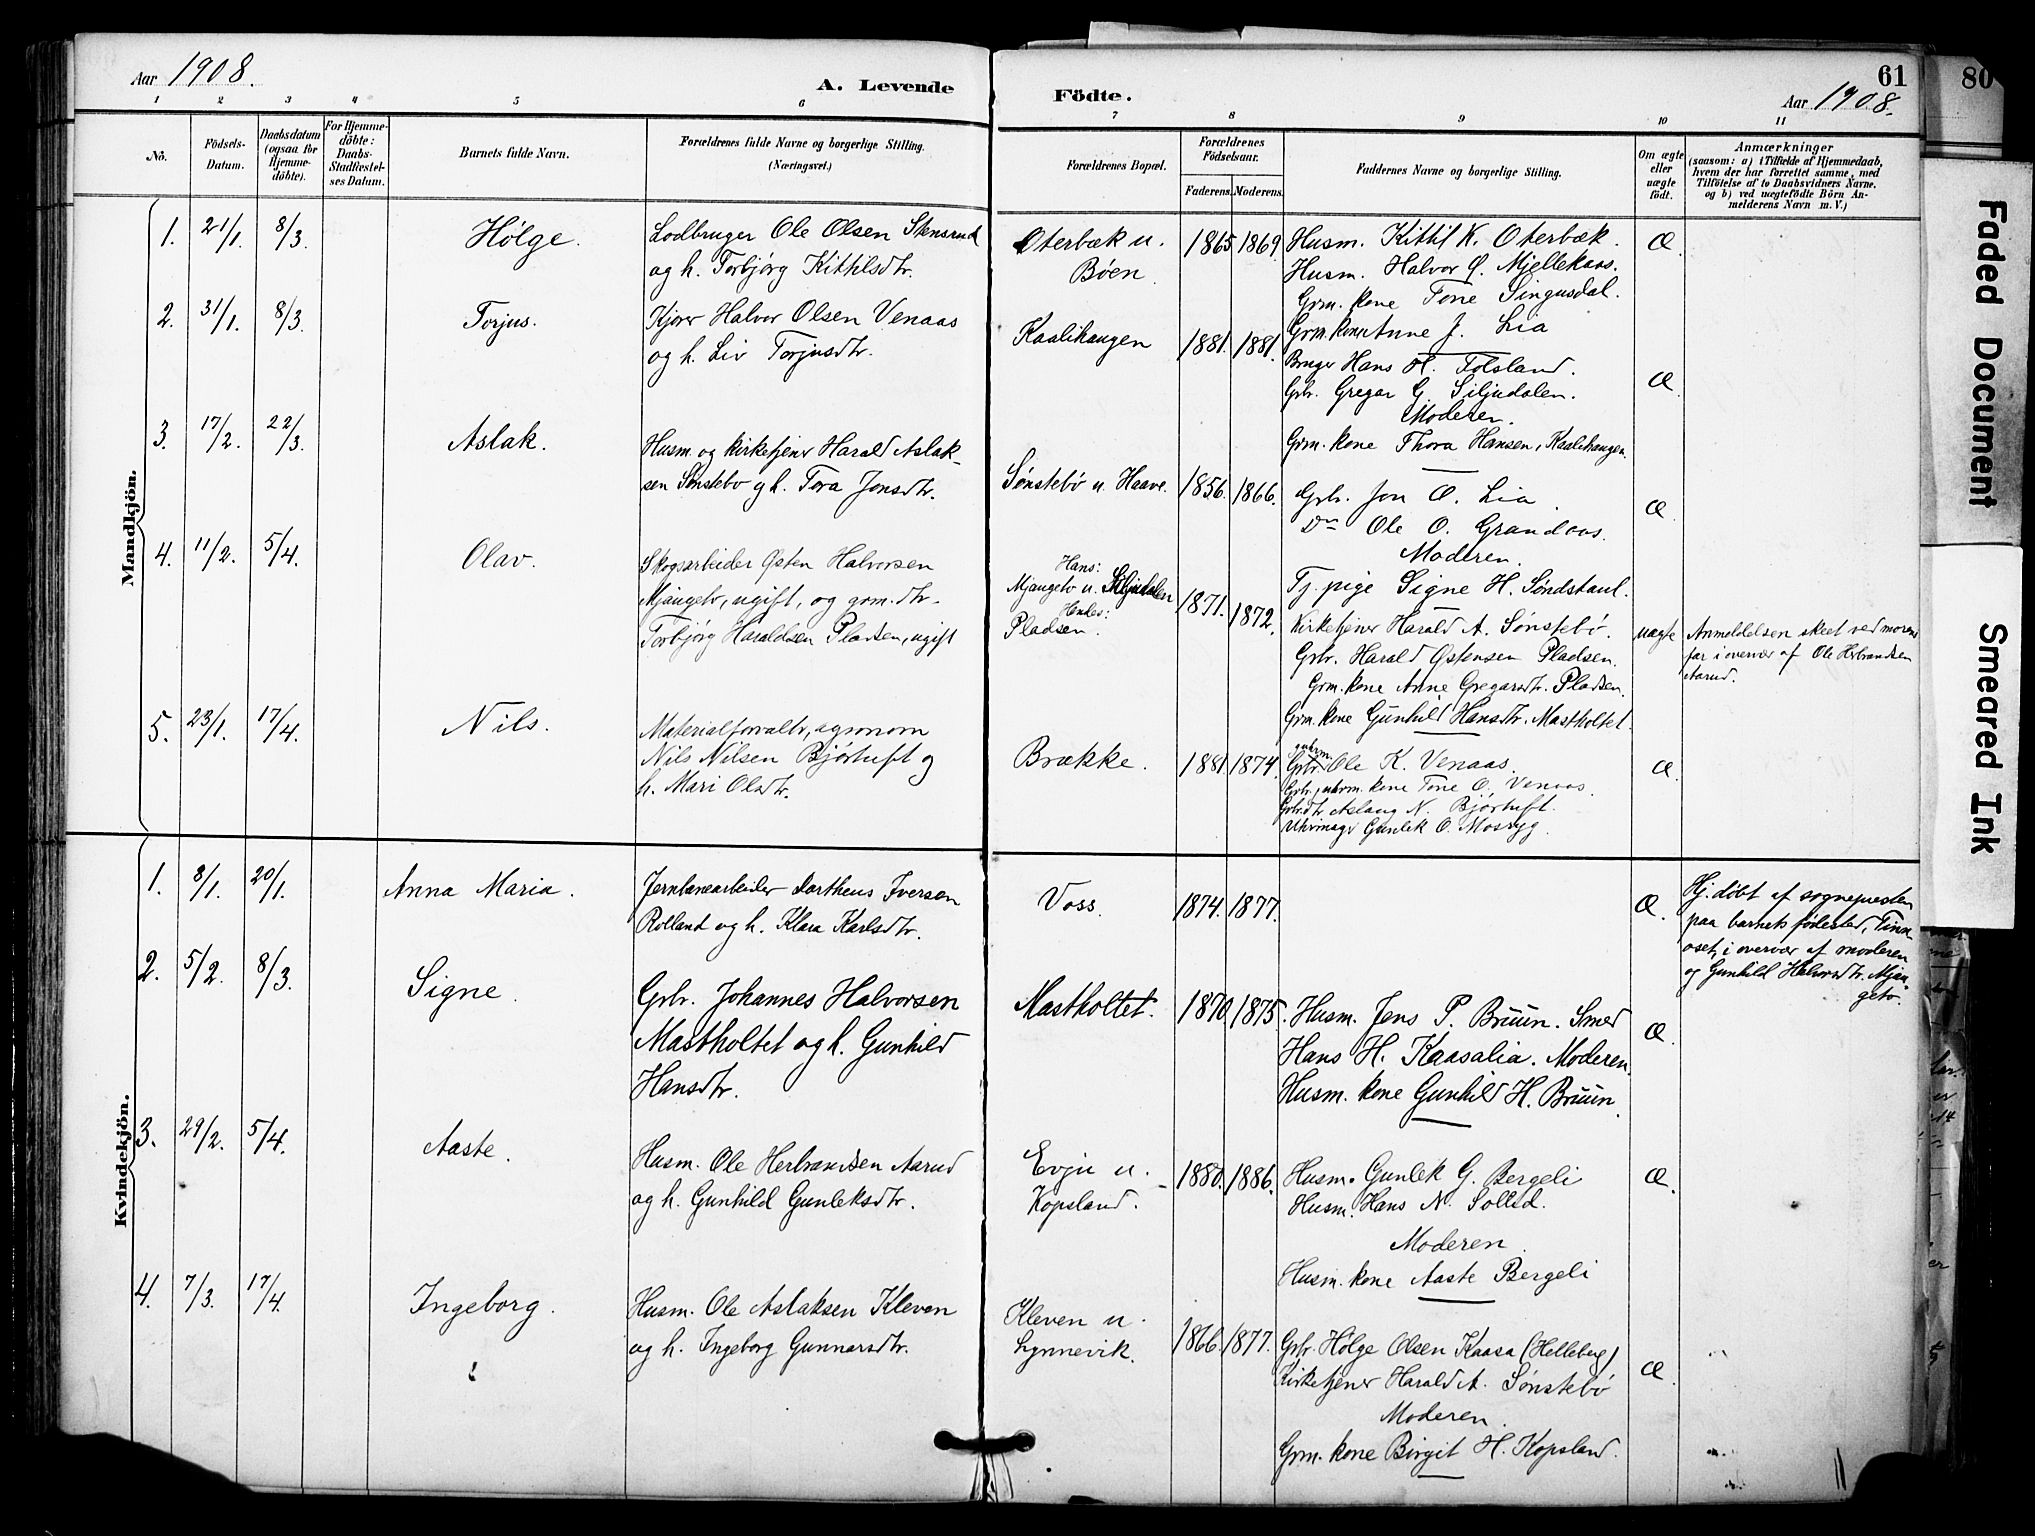 Aar 1908.
A. Levende
Födte.
61
Aar 1908.
80
1 2 3 4 5 6 7 8 9 10 11
No.
Födsels-
Datum.
Daabsdatum
(ogsaa for
Hjemme-
döbte).
For Hjemme-
döbte:
Daabs-
Stadfæstel-
ses Datum.
Barnets fulde Navn.
Forældrenes fulde Navne og borgerlige Stilling.
(Næringsvei.)
Forældrenes Bopæl.
Forældrenes
Födselsaar.
Faderens. Moderens.
Faddernes Navne og borgerlige Stilling.
Om ægte
eller
uægte
födt.
Anmærkninger
(saasom: a) i Tilfælde af Hjemmedaab,
hvem der har forrettet samme, med
Tilföielse af to Daabsvidners Navne.
og b) ved uægtefödte Börn An-
melderens Navn m. V.)
Mandkjön.
1. 21/1. 8/3. Hölge.
Lodbruger Ole Olsen Stensrud
og h. Torbjörg Kittilsdtr.
Oterbæk u.
Böen
1865 1869.
Husm. Kittil K. Oterbæk.
Husm. Halvor O. Mjellekaas.
Grm. kone Tone Singusdal.
Grm. kone Anne J. Lia
Æ.
2. 31/1. 8/3. Torjus.
Kjörer Halvor Olsen Venaas
og h. Liv Torjusdtr.
Kaalihaugen
1881. 1881.
Bruger Hans H. Folsland.
Grbr. Gregar G. Siljudalen.
Moderen.
Grm. kone Thora Hansen, Kaalihaugen.
Æ.
3. 17/2. 22/3. Aslak.
Husm. og kirketjener Harald Aslak-
sen Sönstebö og h. Tora Jonsdtr.
Sönstebö u. Haave.
1856. 1866.
Grbr. Jon O. Lia
Do Ole O. Grandaas.
Moderen.
Tj. pige Signe H. Söndstaul.
Æ.
4. 11/2. 5/4. Olav.
Skogsarbeider Östen Halvorsen
Mjaugetv, ugift, og grm. dtr.
Torbjörg Haraldsen Pladsen, ugift
Hans:
Mjaugetv u. Siljudalen
Hendes:
Pladsen.
1871. 1872.
Kirketjener Harald A. Sönstebö.
Grbr. Harald Östensen Pladsen.
Grm. kone Anne Gregarsdtr. Pladsen.
Grm. kone Gunhild Hansdtr. Mastholtet.
uægte
Anmeldelsen skeet ved morens
far i overvær af Ole Herbrandsen
Aarud.
5. 23/1. 17/4. Nils.
Materialforvalter, agronom
Nils Nilsen Björtuft og
h. Mari Olsdtr.
Brække.
1881 1874.
Grbr. Ole K. Venaas.
kone Tone O. Venaas.
Grbr. dtr. Aslaug N. Björtuft.
Gunlek O. Mosryg.
Æ.
Kvindekjön.
1. 8/1. 20/1. Anna Maria.
Jernbanearbeider Dortheus Iversen
Rolland og h. Klara Karlsdtr.
Voss.
1874. 1877.
Æ.
Hj. döbt af sognepresten
paa barnets födested, Tinn-
oset, i overvær af moderen
og Gunhild Halvorsdtr. Mjau-
getv.
2. 5/2. 8/3. Signe.
Grbr. Johannes Halvorsen
Mastholtet og h. Gunhild
Hansdtr.
Mastholtet.
1870. 1875.
Husm. Jens P. Bruun. Smed
Hans H. Kaasalia. Moderen.
Husm. kone Gunhild H. Bruun.
Æ.
3. 29/2. 5/4. Aaste.
Husm. Ole Herbrandsen Aarud
og h. Gunhild Gunleksdtr.
Evju u.
Kopsland.
1880. 1886.
Husm. Gunlek G. Bergeli
Husm. Hans N. Sollid.
Moderen.
Husm. kone Aaste Bergeli
Æ.
4. 7/3. 17/4. Ingeborg.
Husm. Ole Aslaksen Kleven
og h. Ingeborg Gunnarsdtr.
Kleven u.
Lynnevik.
1866. 1877.
Grbr. Hölge Olsen Kaasa (Helleberg)
Kirketjener Harald A. Sönstebö
Moderen.
Grm. kone Birgit H. Kopsland.
Æ.
Faded Document
Smeared Ink